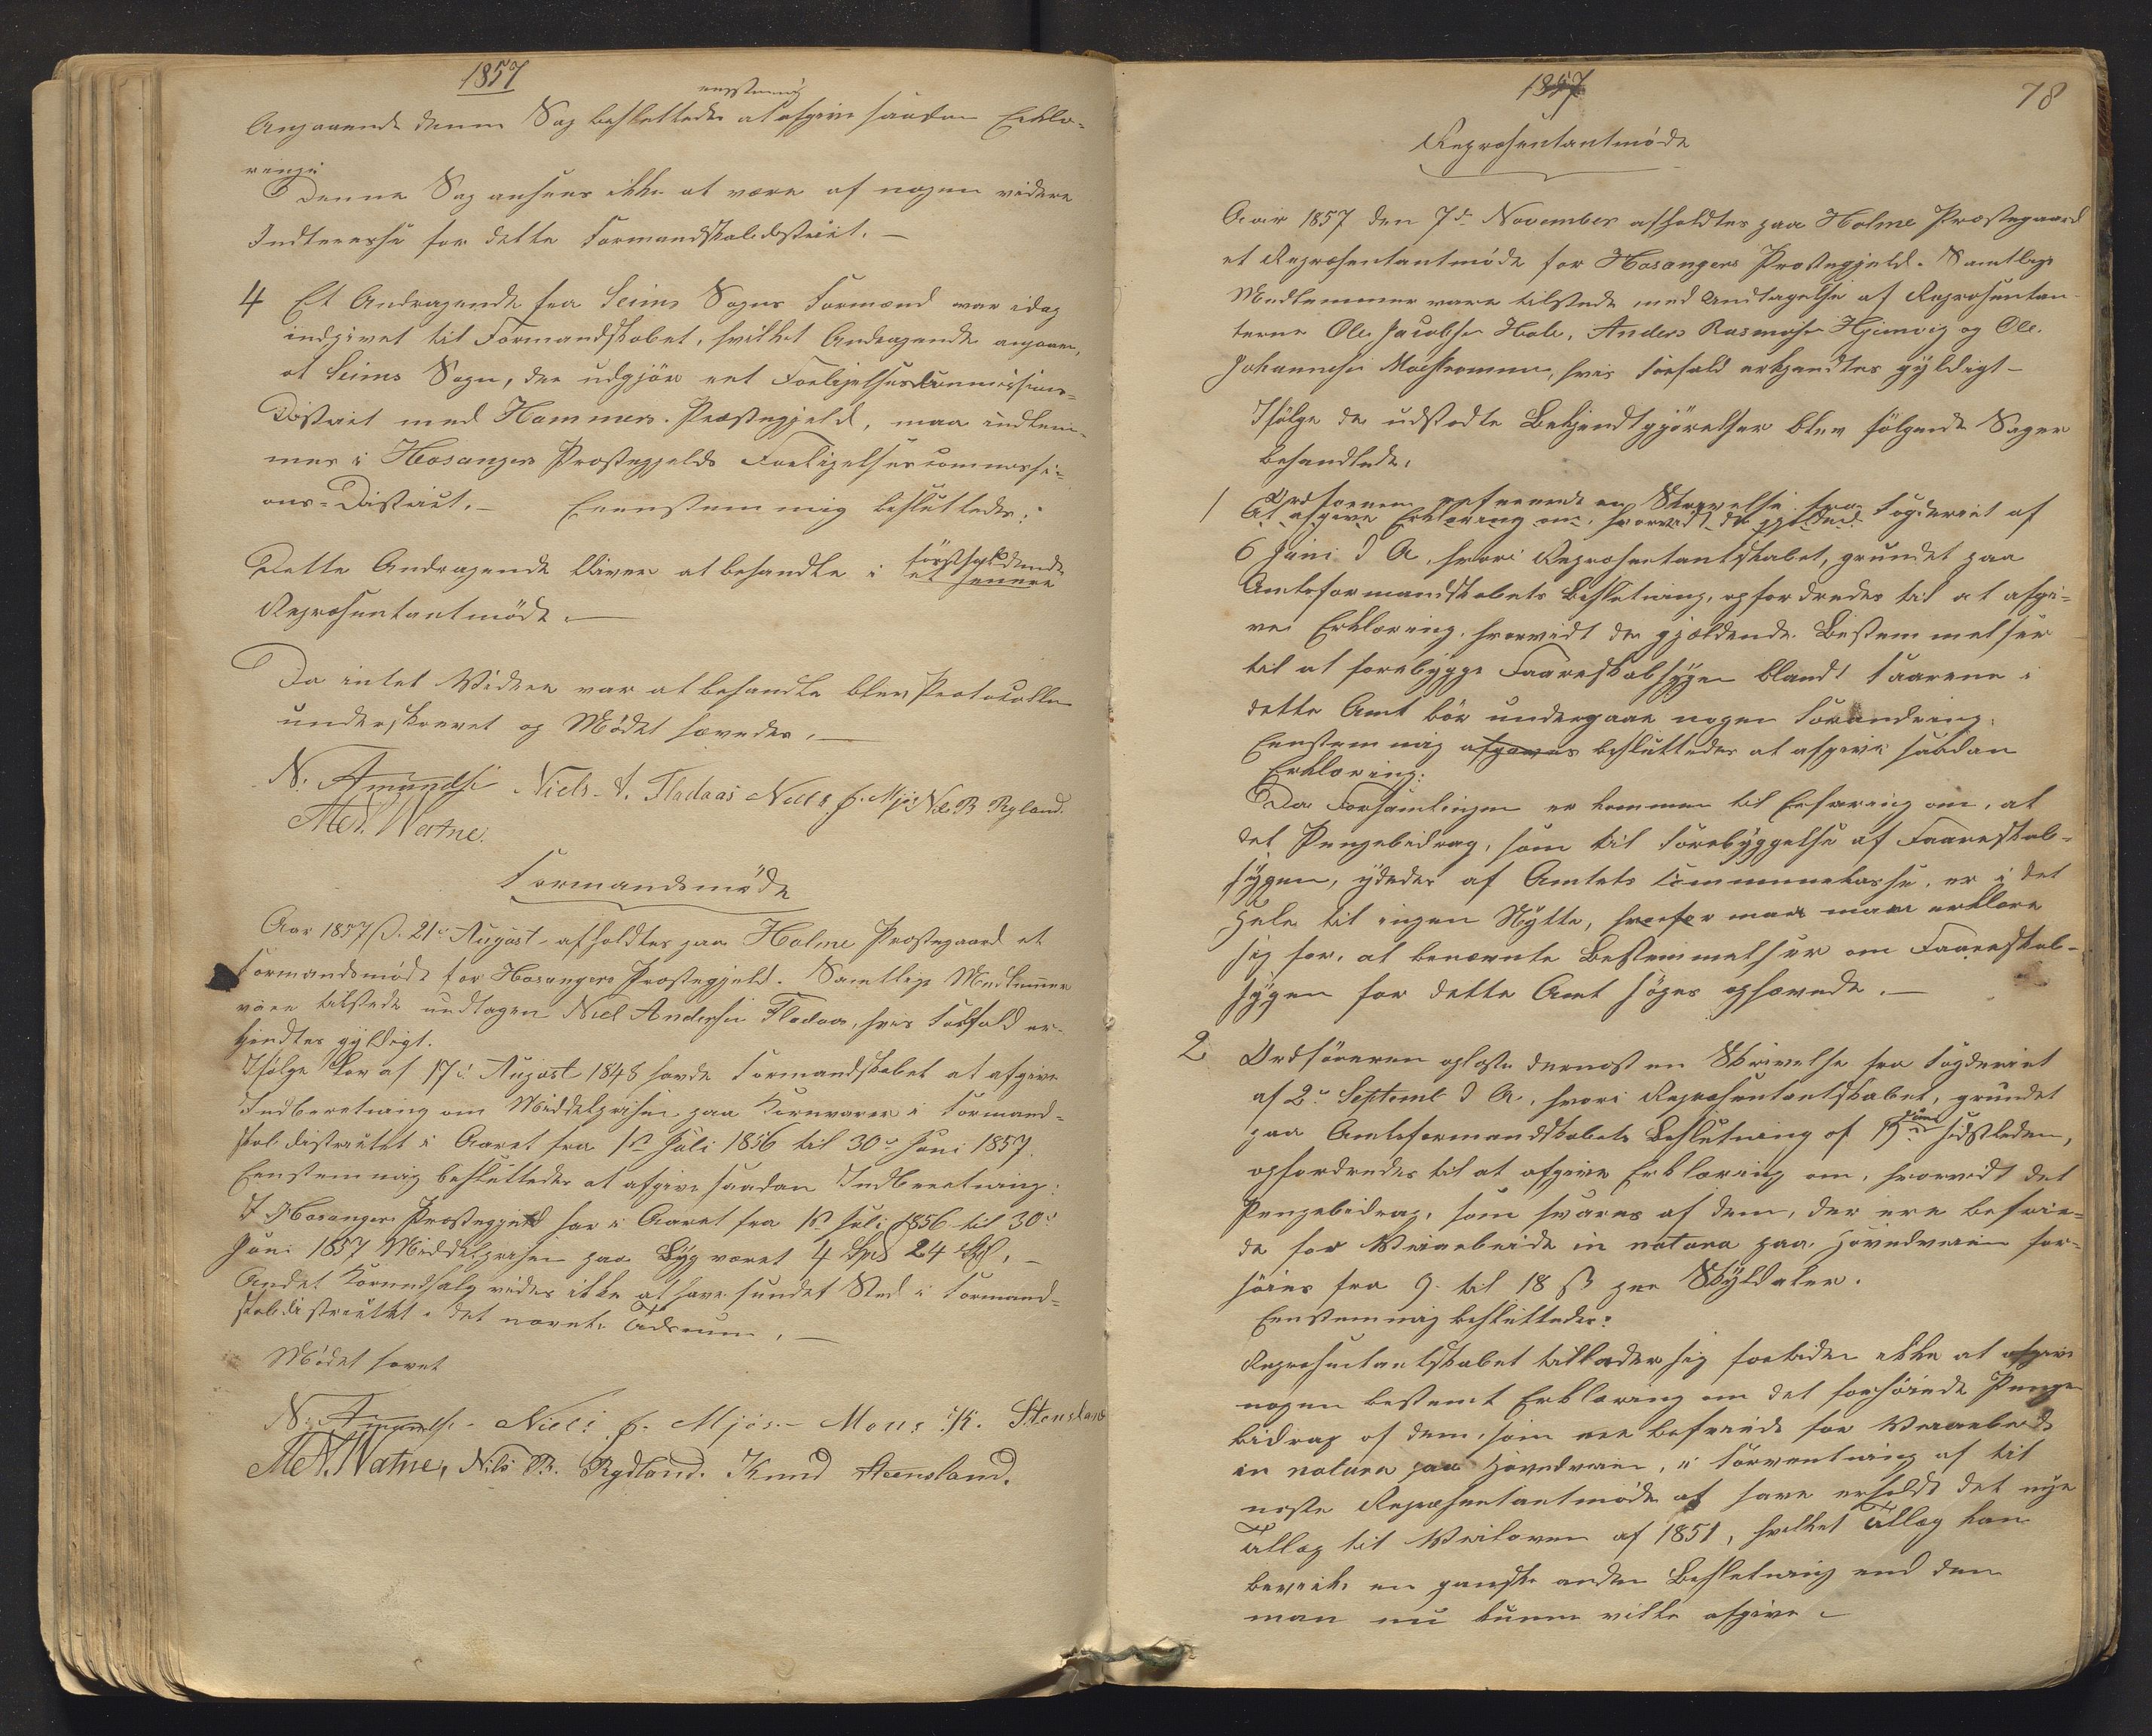 1857
eenstemig
Angaaende denne Sag besluttedes at afgive saadan Erklæ-
ringe
Denne Sag ansees ikke at være af nogen videre
Indteresse for dette Formandskabsdistrict. —
4 Et Andragende fra Seims Sogns Formænd var idag
indgivet til Formandskabet, hvilket Andragende angaaer,
at Seims Sogn, der udgjør eet Forligelsescommissions-
District med Hammers Præstegjeld, maa indlem-
mes i Hosangers Præstegjelds Forligelsescommissi-
ons-District. — Eenstemmig besluttedes:
Dette Andragende bliver at behandle i førstholdende
et senere
Repræsentantmøde. —
Da intet Videre var at behandle blev Protocollen
underskrevet og Mødet hævedes. —
N. Amundsen Niels A. Fladaas Niels J. Mjøs Nils R Rydland.
M N. Watne.
Formandsmøde
Aar 1857 d. 21de August afholdtes paa Holme Præstegaard et
Formandsmøde for Hosangers Præstegjeld. Samtlige Medlemmer
vare tilstede undtagen Niel Andersen Fladaa, hvis Forfald er-
kjendtes gyldigt.
Ifølge Lov af 17de August 1848 havde Formandskabet at afgive
Indberetning om Middelprisen paa Kornvarer i Formand-
skabsdistrictet i Aaret fra 1ste Juli 1856 til 30te Juni 1857.
Eenstemmig besluttedes at afgive saadan Indberetning:
I Hosangers Præstegjeld har i Aaret fra 1ste Juli 1856 til 30te
Juni 1857 Middelprisen paa Byg været 4 Spd 24 ß. —
Andet Kornudsalg vides ikke at have fundet Sted i Formand-
skabsdistrictet i det nævnte Tidsrum. —
Mødet hævet
N. Amundsen Niels J. Mjøs. Mons K. Stensland
M N. Watne, Nils R. Rydland. Knud Steensland.
1857
78
Repræsentantmøde
Aar 1857 den 7de November afholdtes paa Holme Præstegaard
et Repræsentantmøde for Hosangers Præstegjeld. Samtlige
Medlemmer vare tilstede med Undtagelse af Repræsentan-
terne Ole Jacobsen Hole, Anders Rasmusen Hjemvig og Ole
Johannesen Mostrommen, hvis Forfald erkjendtes gyldigt —
Ifølge de udstædte Bekjendtgjørelser blev følgende Sager
behandlede:
1 Ordføreren refererede en Skrivelse fra Fogderiet af
At afgive Erklæring om, hvorvidt de gjeldende
6 Juni d A, hvori Repræsentantskabet, grundet paa
Amtsformandskabets Beslutning, opfordredes til at afgi-
ve Erklæring, hvorvidt de gjældende Bestemmelser
til at forebygge Faareskabsygen blandt Faarene i
dette Amt bør undergaae nogen Forandring.
Eenstemmig afgaves besluttedes at afgive saadan
Erklæring:
Da Forsamlingen er kommen til Erfaring om, at
det Pengebidrag, som til Forebyggelse af Faareskab-
sygen, ydedes af Amtets Communekasse, er i det
Hele til ingen Nytte, hvorfor man maa erklære
sig for, at benævnte Bestemmelser om Faareskab-
sygen for dette Amt søges ophævede. —
2 Ordføreren oplæste dernæst en Skrivelse fra Fogderiet
af 2de Septemb d A, hvori Repræsentantskabet, grundet
paa Amtsformandskabets Beslutning af Juni sidstleden,
opfordredes til at afgive Erklæring om, hvorvidt det
Pengebidrag, som svares af dem, der ere befrie-
de for Veiarbeide in natura paa Hovedveien for-
høies fra 9 til 18 ß per Skylddaler.
Eenstemmig besluttedes:
Repræsentantskabet tillader sig fortiden ikke at afgive
nogen bestemt Erklæring om det forhøiede Penge-
bidrag af dem, som ere befriede for Veiarbeide
in natura paa Hovedveien, i Forventning af til
næste Repræsentantmøde at have erholdt det nye
Tillæg til Veiloven af 1851, hvilket Tillæg kan
bevirke en ganske anden Beslutning end den
man nu kunne ville afgive. —